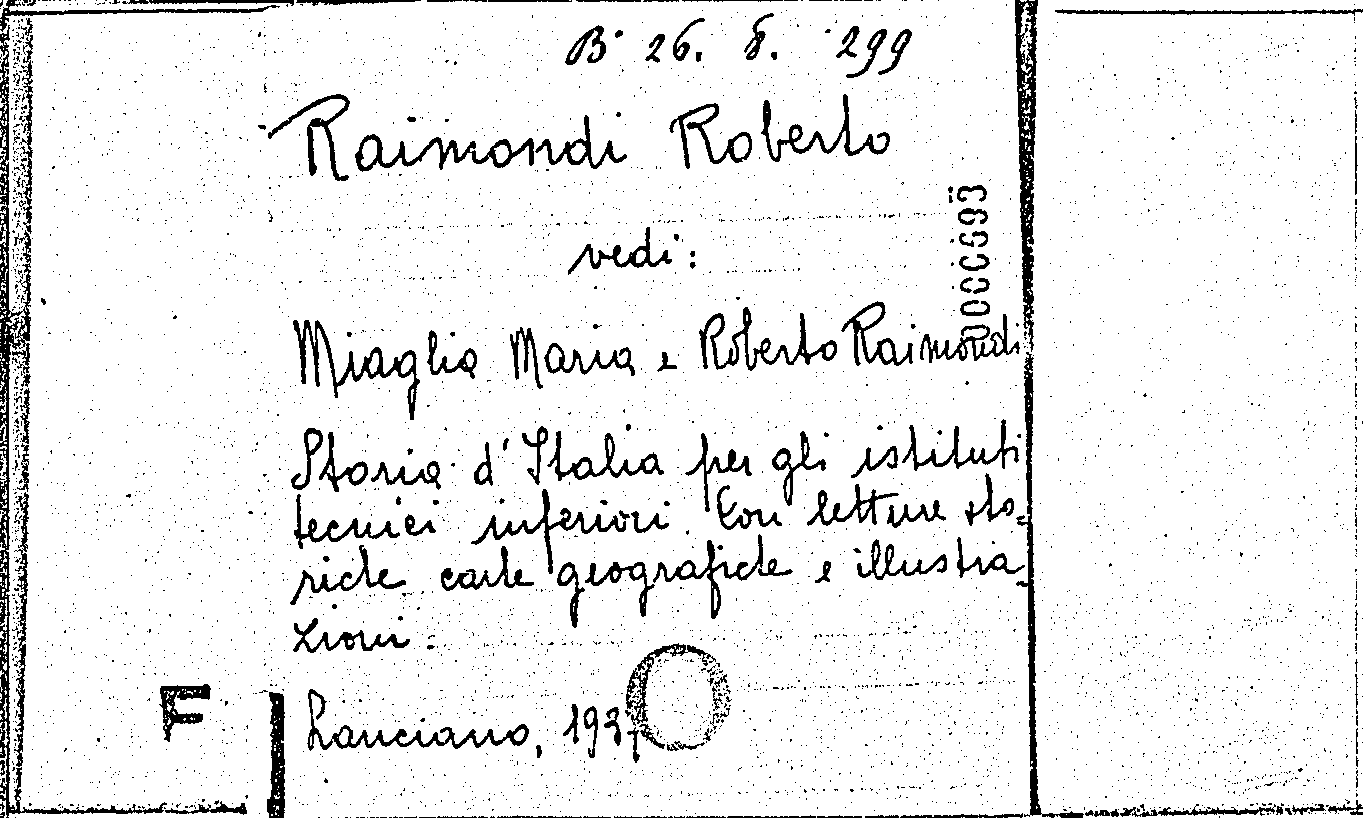 B 26. 8. 299
Raimondi Roberto
vedi:
Miaglia Maria e Roberto Raimondi
Storia d'Italia per gli istituti
tecnici inferiori. Con letture sto=
riche carte geografiche e illustra=
zioni.
F
Lanciano, 1937